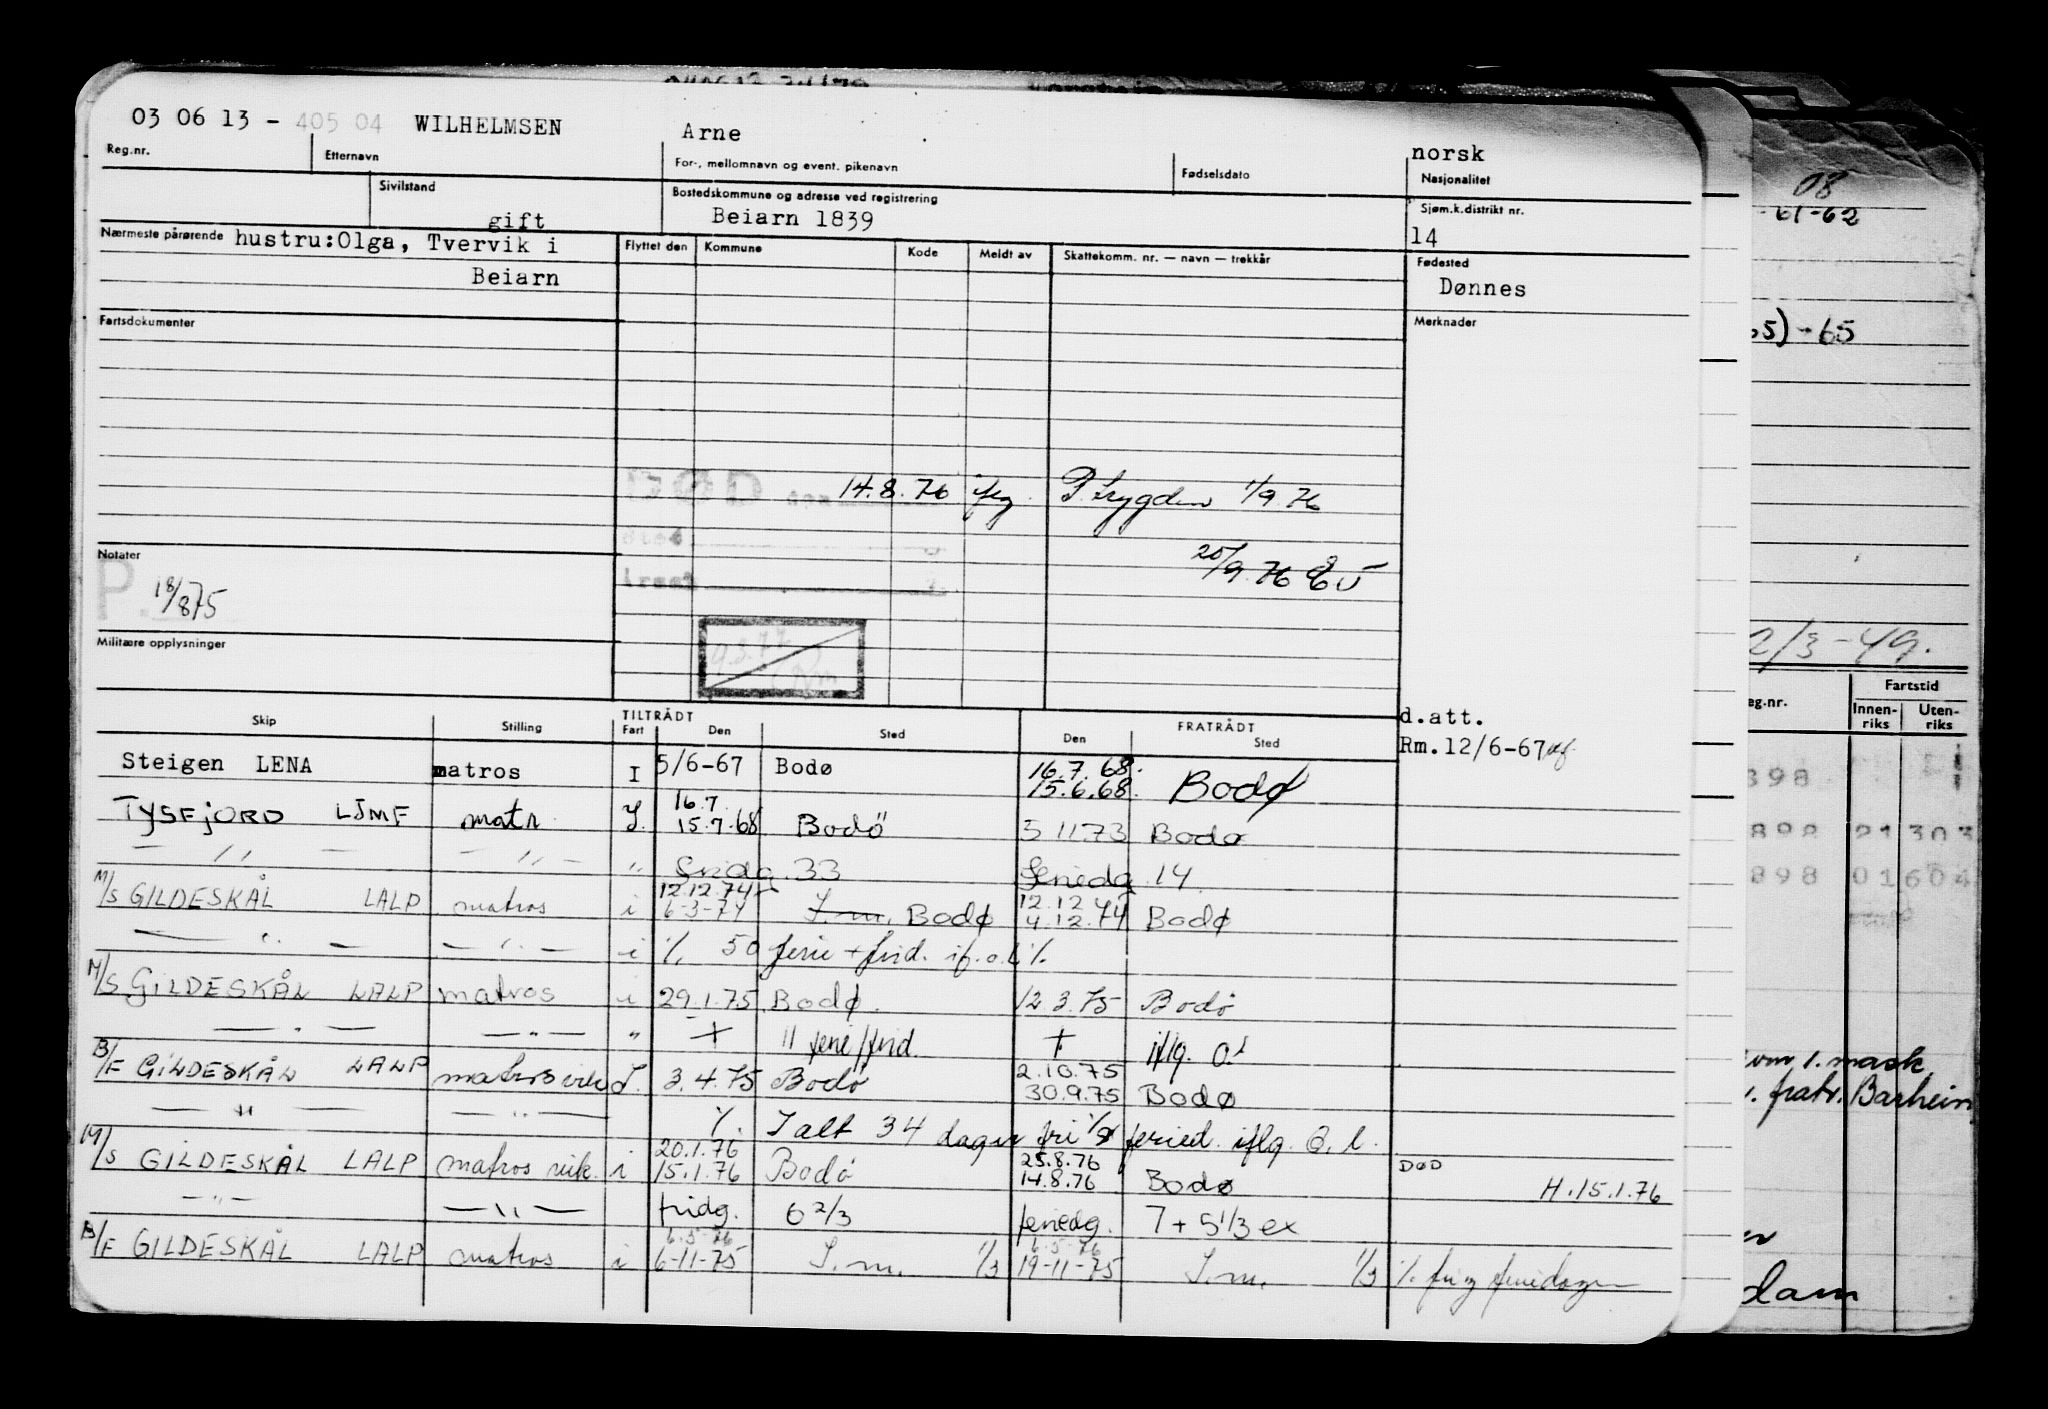 03 06 13 - 405 04 WILHELMSEN Arne norsk
Reg.nr. Etternavn For-, mellomnavn og event. pikenavn Fødselsdato Nasjonalitet
Sivilstand Bostedskommune og adresse ved registrering Sjøm.k.distrikt nr.
gift Beiarn 1839 14
Nærmeste pårørende hustru:Olga, Tvervik i Flyttet den Kommune Kode Meldt av Skattekomm. nr. — navn — trekkår Fødested
Beiarn Dønnes
Fartsdokumenter Merknader
DØD den 14.8.76 P.trygden 1/9.76
Sted
Notater 20/9.76
P. 18/875
Militære opplysninger
9.3.77
Skip Stilling TILTRÅDT Fart Den Sted FRATRÅDT Den Sted d.att.
Rm.12/6-67
Steigen LENA matros I 5/6-67 Bodø 16.7.68. 15.6.68. Bodø
TYSFJORD LJMF matr. I. 16.7. 15.7.68 Bodö 5 11 73 Bodø
— " — — " — " Fridg. 33 feriedg. 14
M/S GILDESKÅL LALP matros i 12.12.74 6-3-74 S.m. Bodø 12.12.74 4.12.74 Bodø
— " — — " — i % 50 ferie + frid. if. o.l %
M/S GILDESKÅL LALP matros i 29.1.75 Bodø. 12 3.75 Bodö
— " — — " — " + 11 ferie/frid. + iflg. o.l
B/F GILDESKÅL LALP matros vik I. 3.4.75 Bodö 2.10.75 30.9.75 Bodø
— " — — " — %. I alt 34 dager fri % feried. iflg. O.l.
M/S GILDESKÅL LALP matros vik. i 20.1.76 15.1.76 Bodö 25.8.76 14.8.76 Bodø DØD H.15.1.76
— " — — " — fridg. 6 2/3 feriedg. 7 + 5 1/3 ex
B/F GILDESKÅL LALP matros i 6.5-76 6-11-75 S.m. 1/3 6.5-76 19-11-75 S.m. 1/3 % fri og feriedager
08
-61-62
65) -65
2/3-49.
eg.nr. Fartstid
Innen-riks Uten-riks
898
898 21 303
898 01 604
om 1. mask
. fratr. Barhein
dam